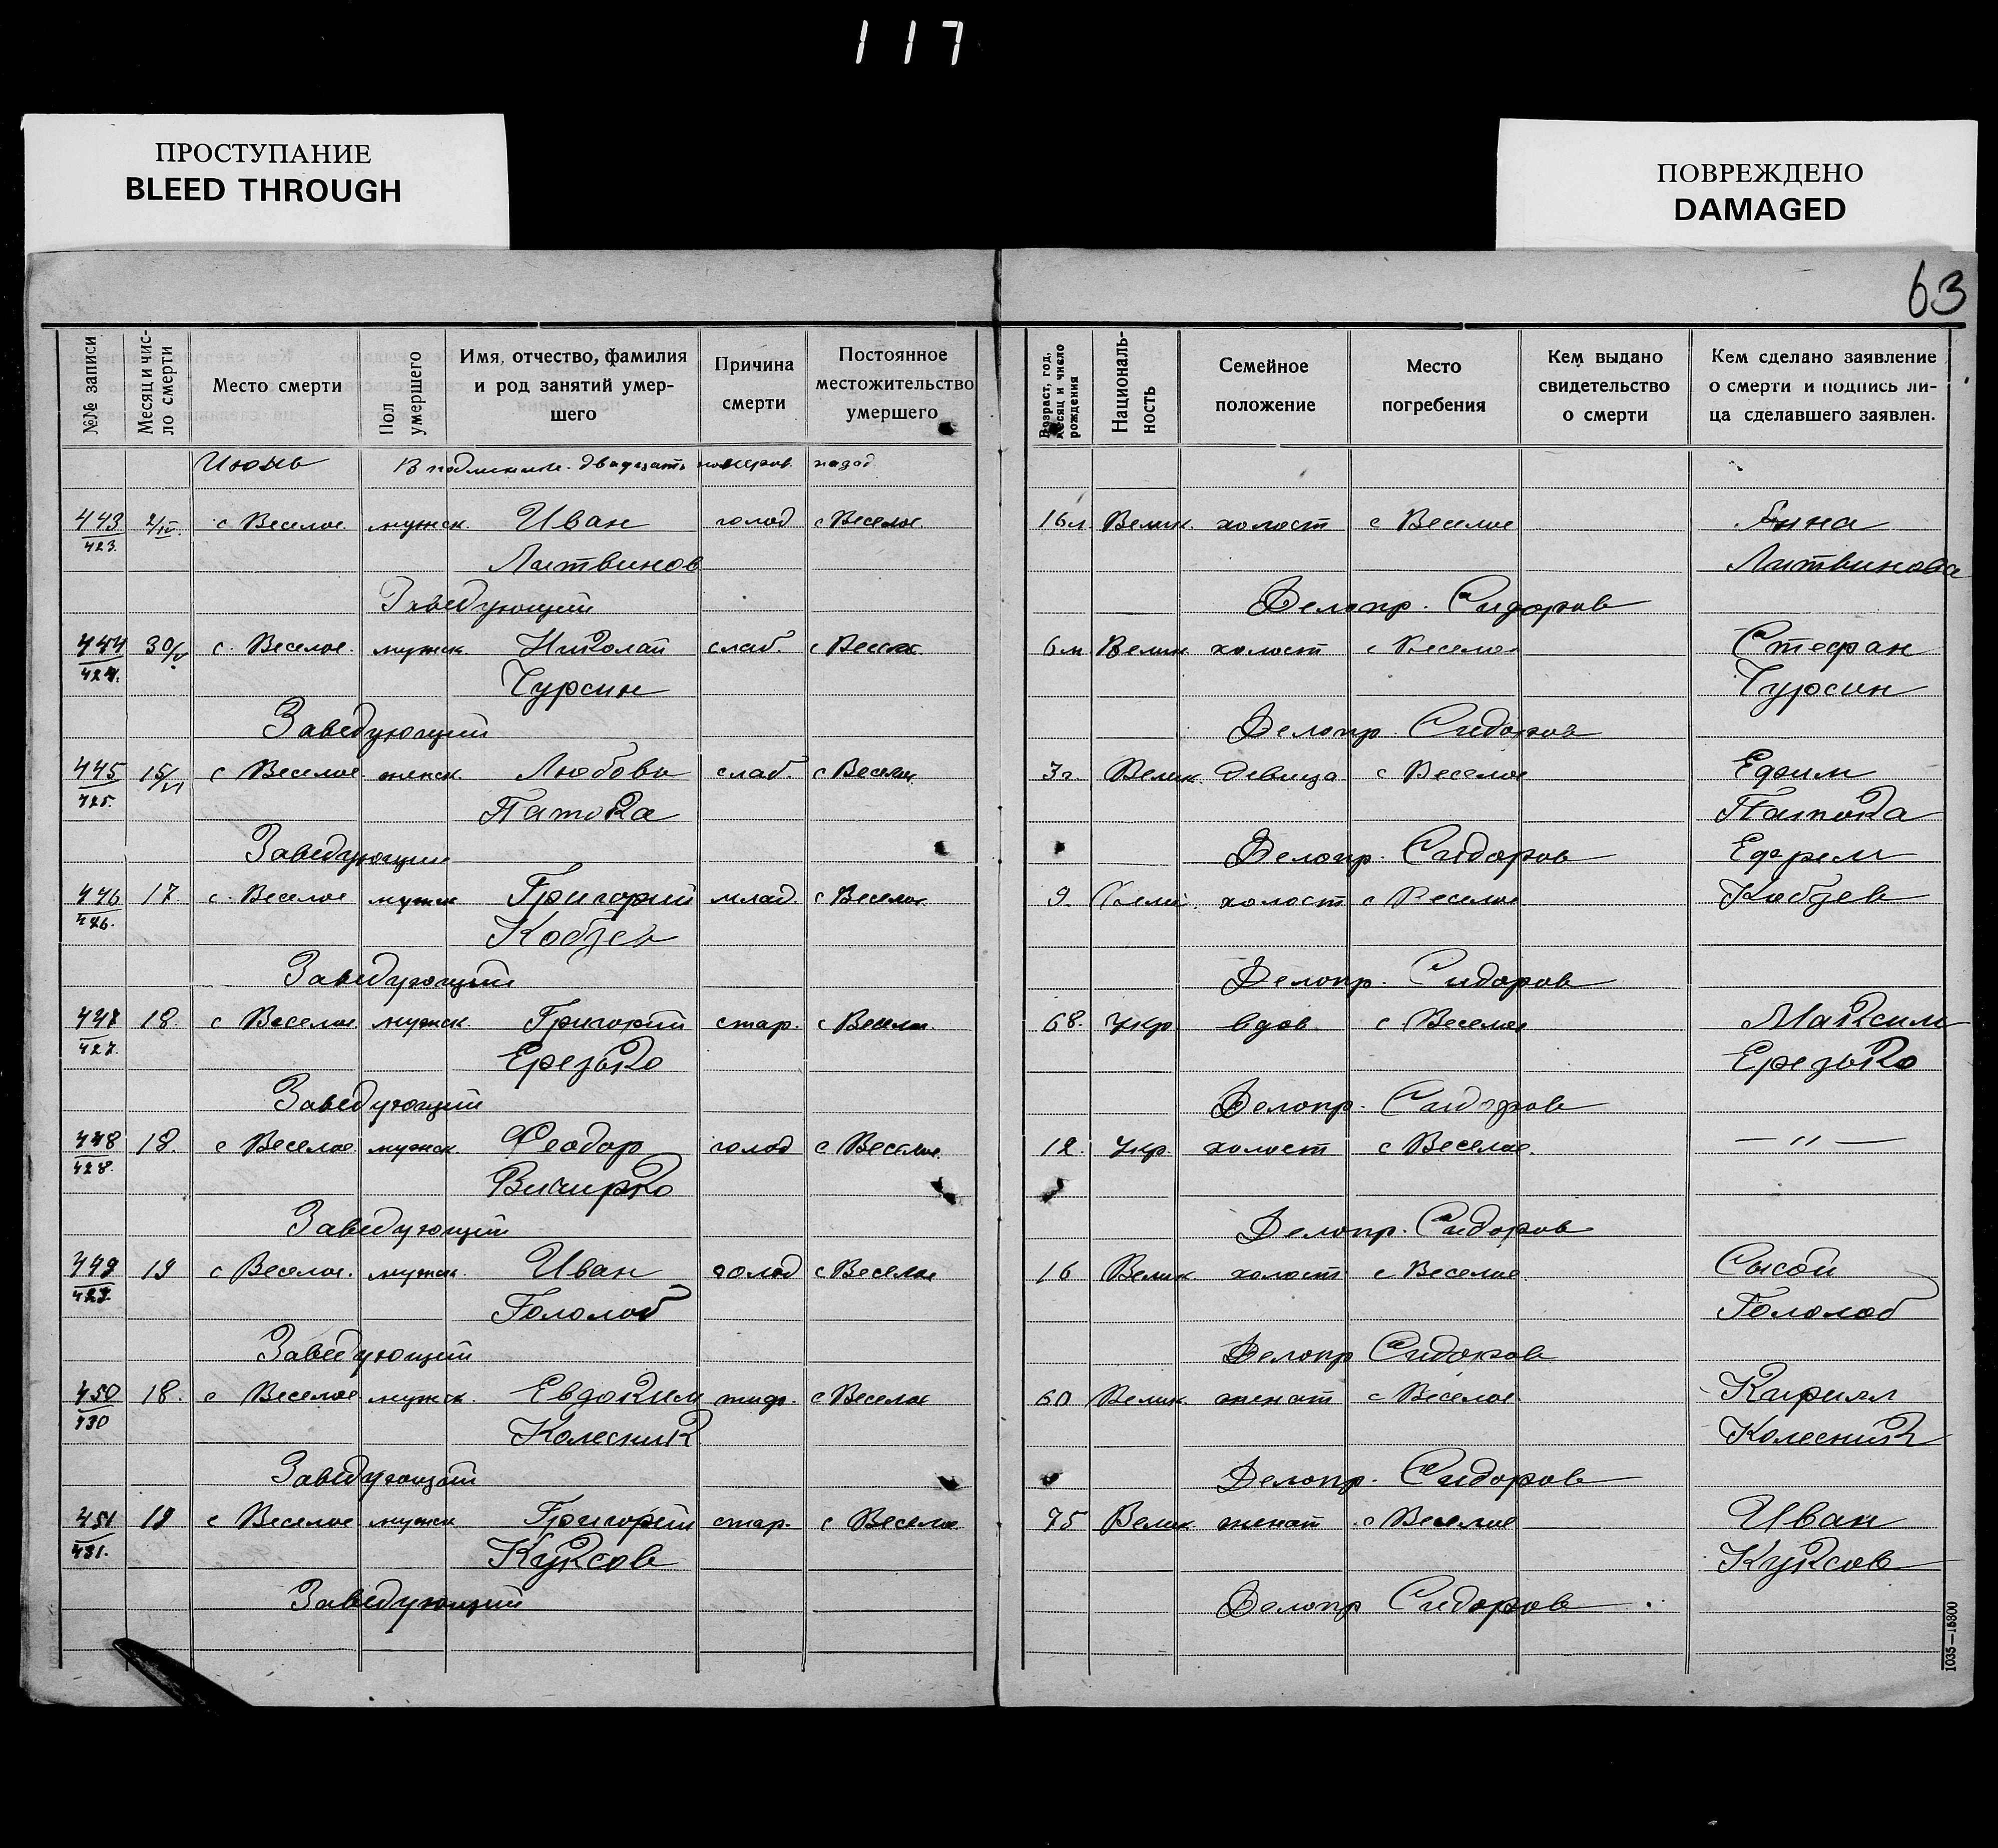 117
ПРОСТУПАНИЕ
BLEED THROUGH
ПОВРЕЖДЕНО
DAMAGED
63
№№ записи | Месяц и число смерти | Место смерти | Пол умершего | Имя, отчество, фамилия и род занятий умершего | Причина смерти | Постоянное местожительство умершего | Возраст, год, месяц и число рождения | Националь-ность | Семейное положение | Место погребения | Кем выдано свидетельство о смерти | Кем сделано заявление о смерти и подпись ли-ца сделавшего заявлен.
Июнь двадцать номеров назад
443 с Веселое мужск. Иван голод с Веселое 16 л. Велик. холост с Веселое Анна
423. Литвинов Литвинова
Заведующий Делопр. Сидоров
444 30/V с. Веселое. мужск Николай слаб. с Веселое 6 м Велик холост с Веселое Стефан
424. Чурсин Чурсин
Заведующий Делопр. Сидоров
445 15/VI с Веселое женск Любовь слаб. с Веселое 3 г. Велик. девица с Веселое Ефим
425. Патока Патока
Заведующий Делопр. Сидоров Ефрем
446 17 с. Веселое мужск Григорий млад. с Веселое 9 холост с Веселое Кобзев
426. Кобзев
Заведующий Делопр. Сидоров
447 18. с Веселое мужск. Григорий стар. с Веселое. 68. Укр. вдов с Веселое Максим
427. Ерезько Ерезько
Заведующий Делопр. Сидоров
448 18. с Веселое мужск. Феодор голод с Веселое. 12. Укр. холост с Веселое. — " —
428. Вичирко
Заведующий Делопр. Сидоров
449 19 с Веселое. мужск. Иван голод с Веселое 16 Велик. холост с Веселое. Сысой
429. Гололоб Гололоб
Заведующий Делопр Сидоров
450 18. с Веселое мужск. Евдоким тиф. с Веселое 60 Велик. женат с Веселое. Кирилл
430 Колесник Колесник
Заведующий Делопр. Сидоров
451 19 с Веселое мужск Григорий стар. с Веселое 75 Велик женат с Веселое Иван
431. Куксов Куксов
Заведующий Делопр Сидоров
1035—15300